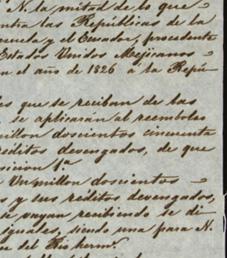 N. la mitad de lo que
ntra las Repúblicas de la
ezuela y el Ecuador, procedente
Estados Unidos Mejicanos
n el año de 1826 á la Repú-
es que se reciban de las
se aplicarán al reembolso
millon doscientos cincuenta
réditos devengados, de que
sicion 1ª
Un millon doscientos
s y sus réditos devengados,
se vayan recibiendo se di
iguales, siendo una para N.